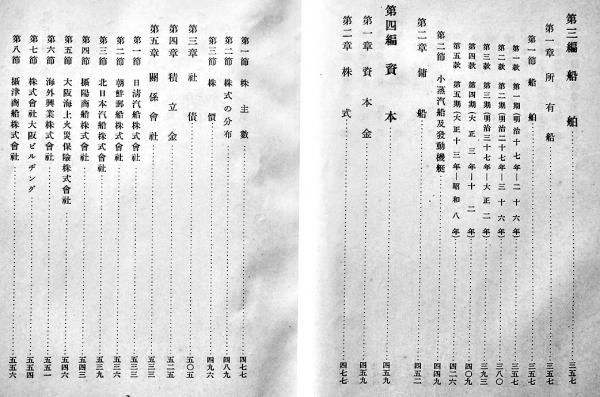 第三編 船舶……三五七
第一章 所有船……三五七
第一節 船舶……三五七
第一款 第一期(明治十七年—二十六年)……三五七
第二款 第二期(明治二十七年—三十六年)……三八〇
第三款 第三期(明治三十七年—大正二年)……三九三
第四款 第四期(大正三年—十二年)……四〇九
第五款 第五期(大正十三年—昭和八年)……四二六
第二節 小蒸汽船及發動機艇……四四〇
第二章 傭船……四五二
第四編 資本……四五九
第一章 資本金……四五九
第二章 株式……四七七
第一節 株主數……四七七
第二節 株式の分布……四八九
第三節 株價……四九六
第三章 社債……五〇五
第四章 積立金……五二五
第五章 關係會社……五三三
第一節 日清汽船株式會社……五三三
第二節 朝鮮郵船株式會社……五三六
第三節 北日本汽船株式會社……五三九
第四節 攝陽商船株式會社……五四三
第五節 大阪海上火災保險株式會社……五四六
第六節 海外興業株式會社……五五一
第七節 株式會社大阪ビルヂング……五五四
第八節 攝津商船株式會社……五五六